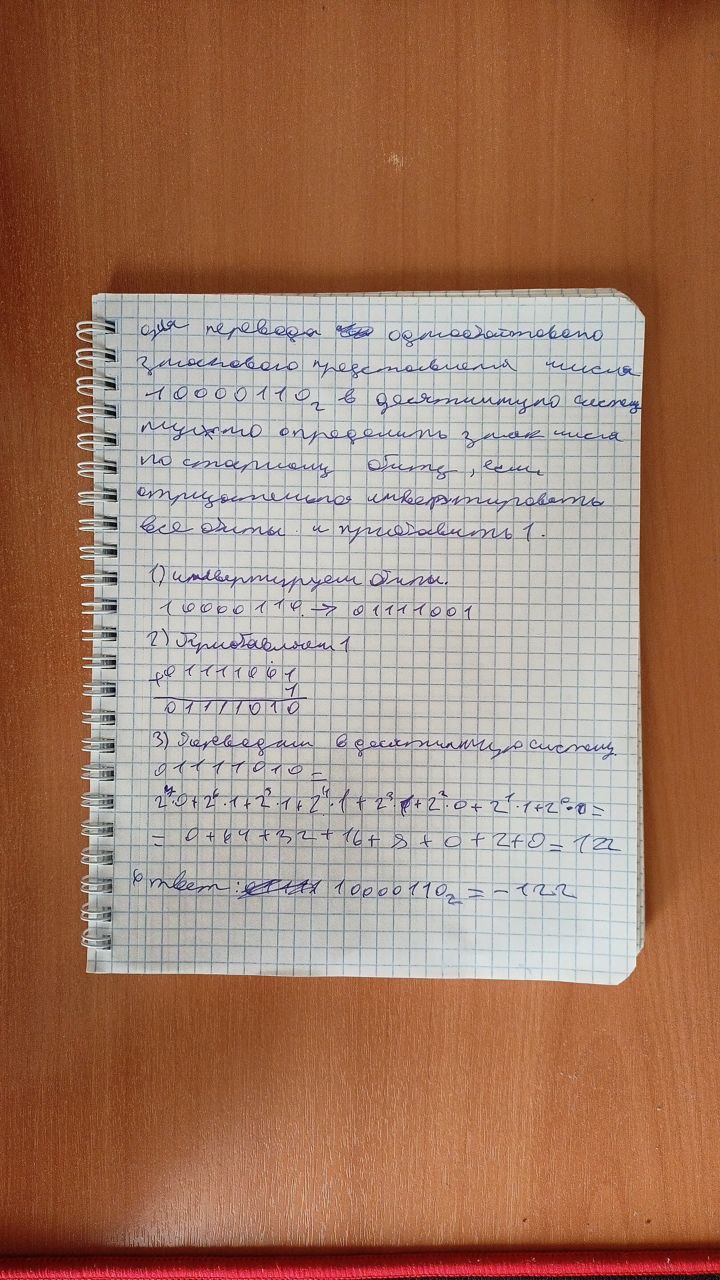 для перевода однобайтового
знакового представления числа
10000110₂ в десятичную систему
нужно определить знак числа
по старшему биту, если
отрицательное инвертировать
все биты и прибавить 1.
1) инвертируем биты.
10000110 → 01111001
2) Прибавляем 1
+01111001
1
01111010
3) Переведём в десятичную систему.
01111010 =
2⁷·0+2⁶·1+2⁵·1+2⁴·1+2³·1+2²·0+2¹·1+2⁰·0=
= 0+64+32+16+8+0+2+0=122
Ответ: 10000110₂ = -122